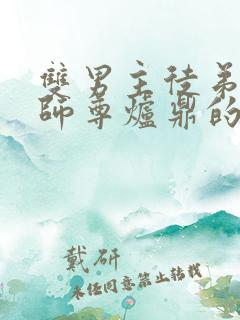 雙男主徒弟
師尊爐鼎的
戴研
未經同意禁止轉載